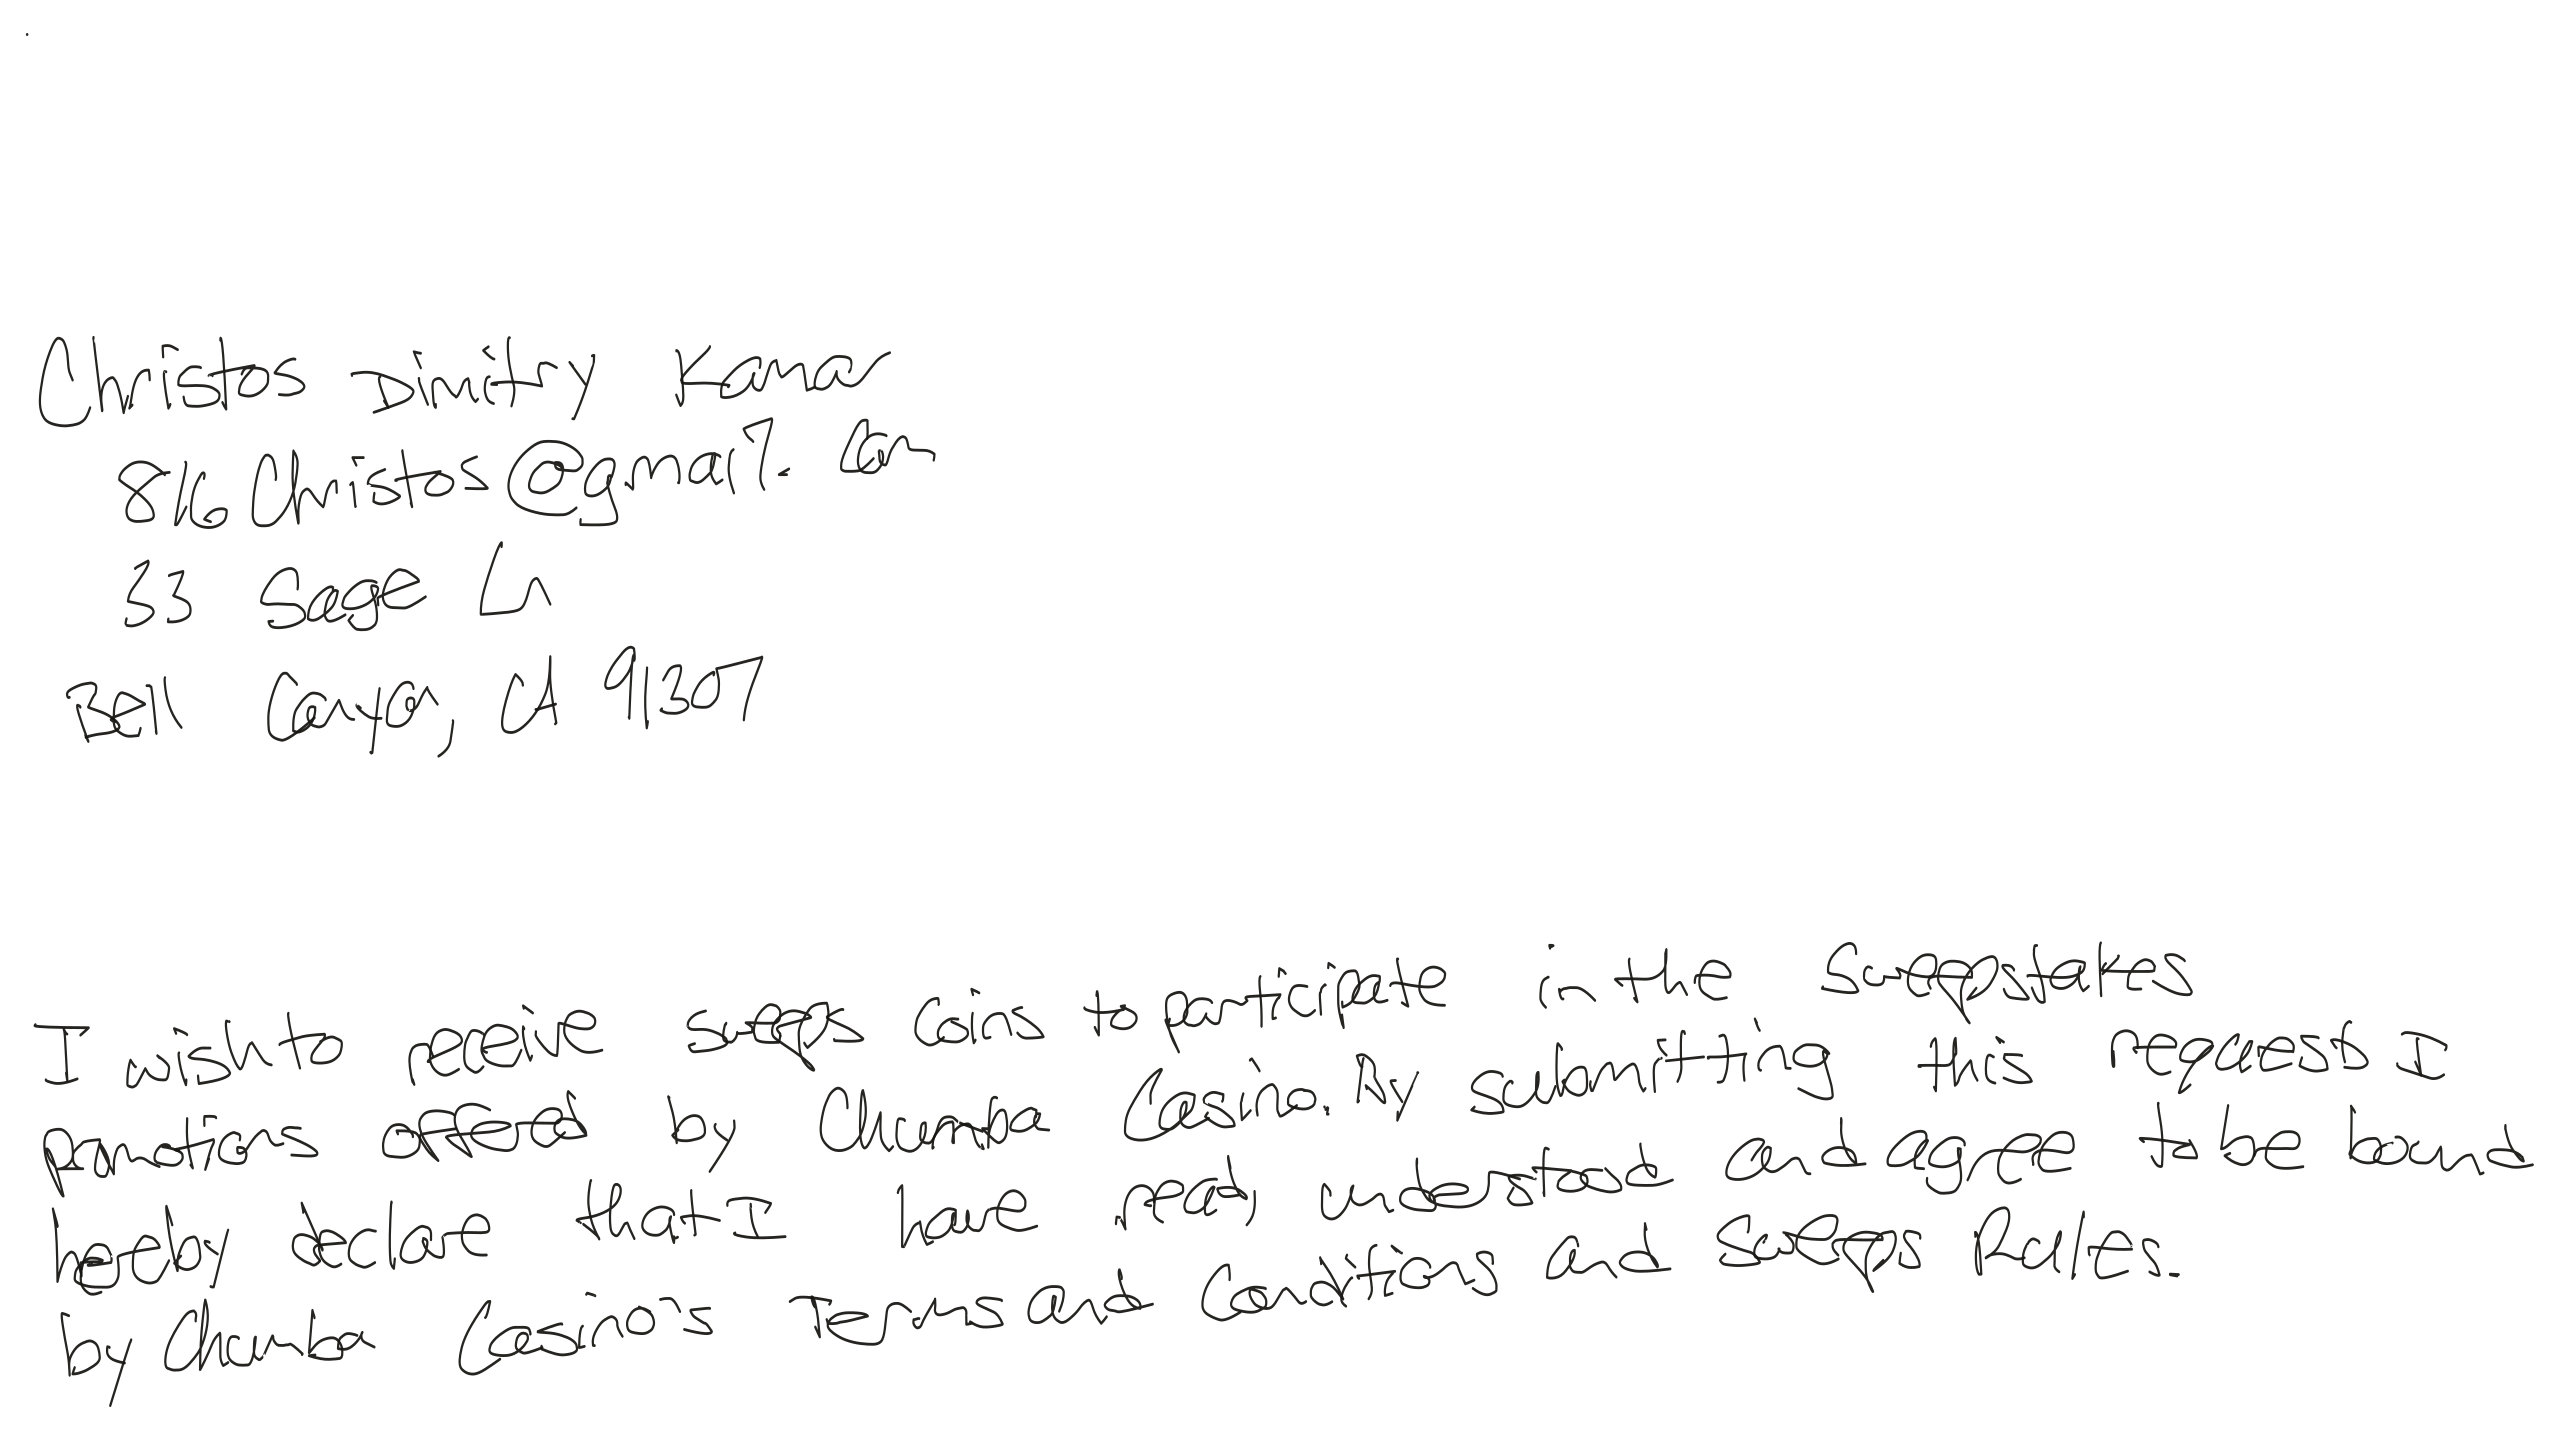 Christos Dimitry Kanar
816Christos@gmail.com
33 Sage Ln
Bell Canyon, CA 91307
I wish to receive sweeps coins to participate in the Sweepstakes
promotions offered by Chumba Casino. By submitting this request I
hereby declare that I have read, understood and agree to be bound
by Chumba Casino's Terms and Conditions and Sweeps Rules.